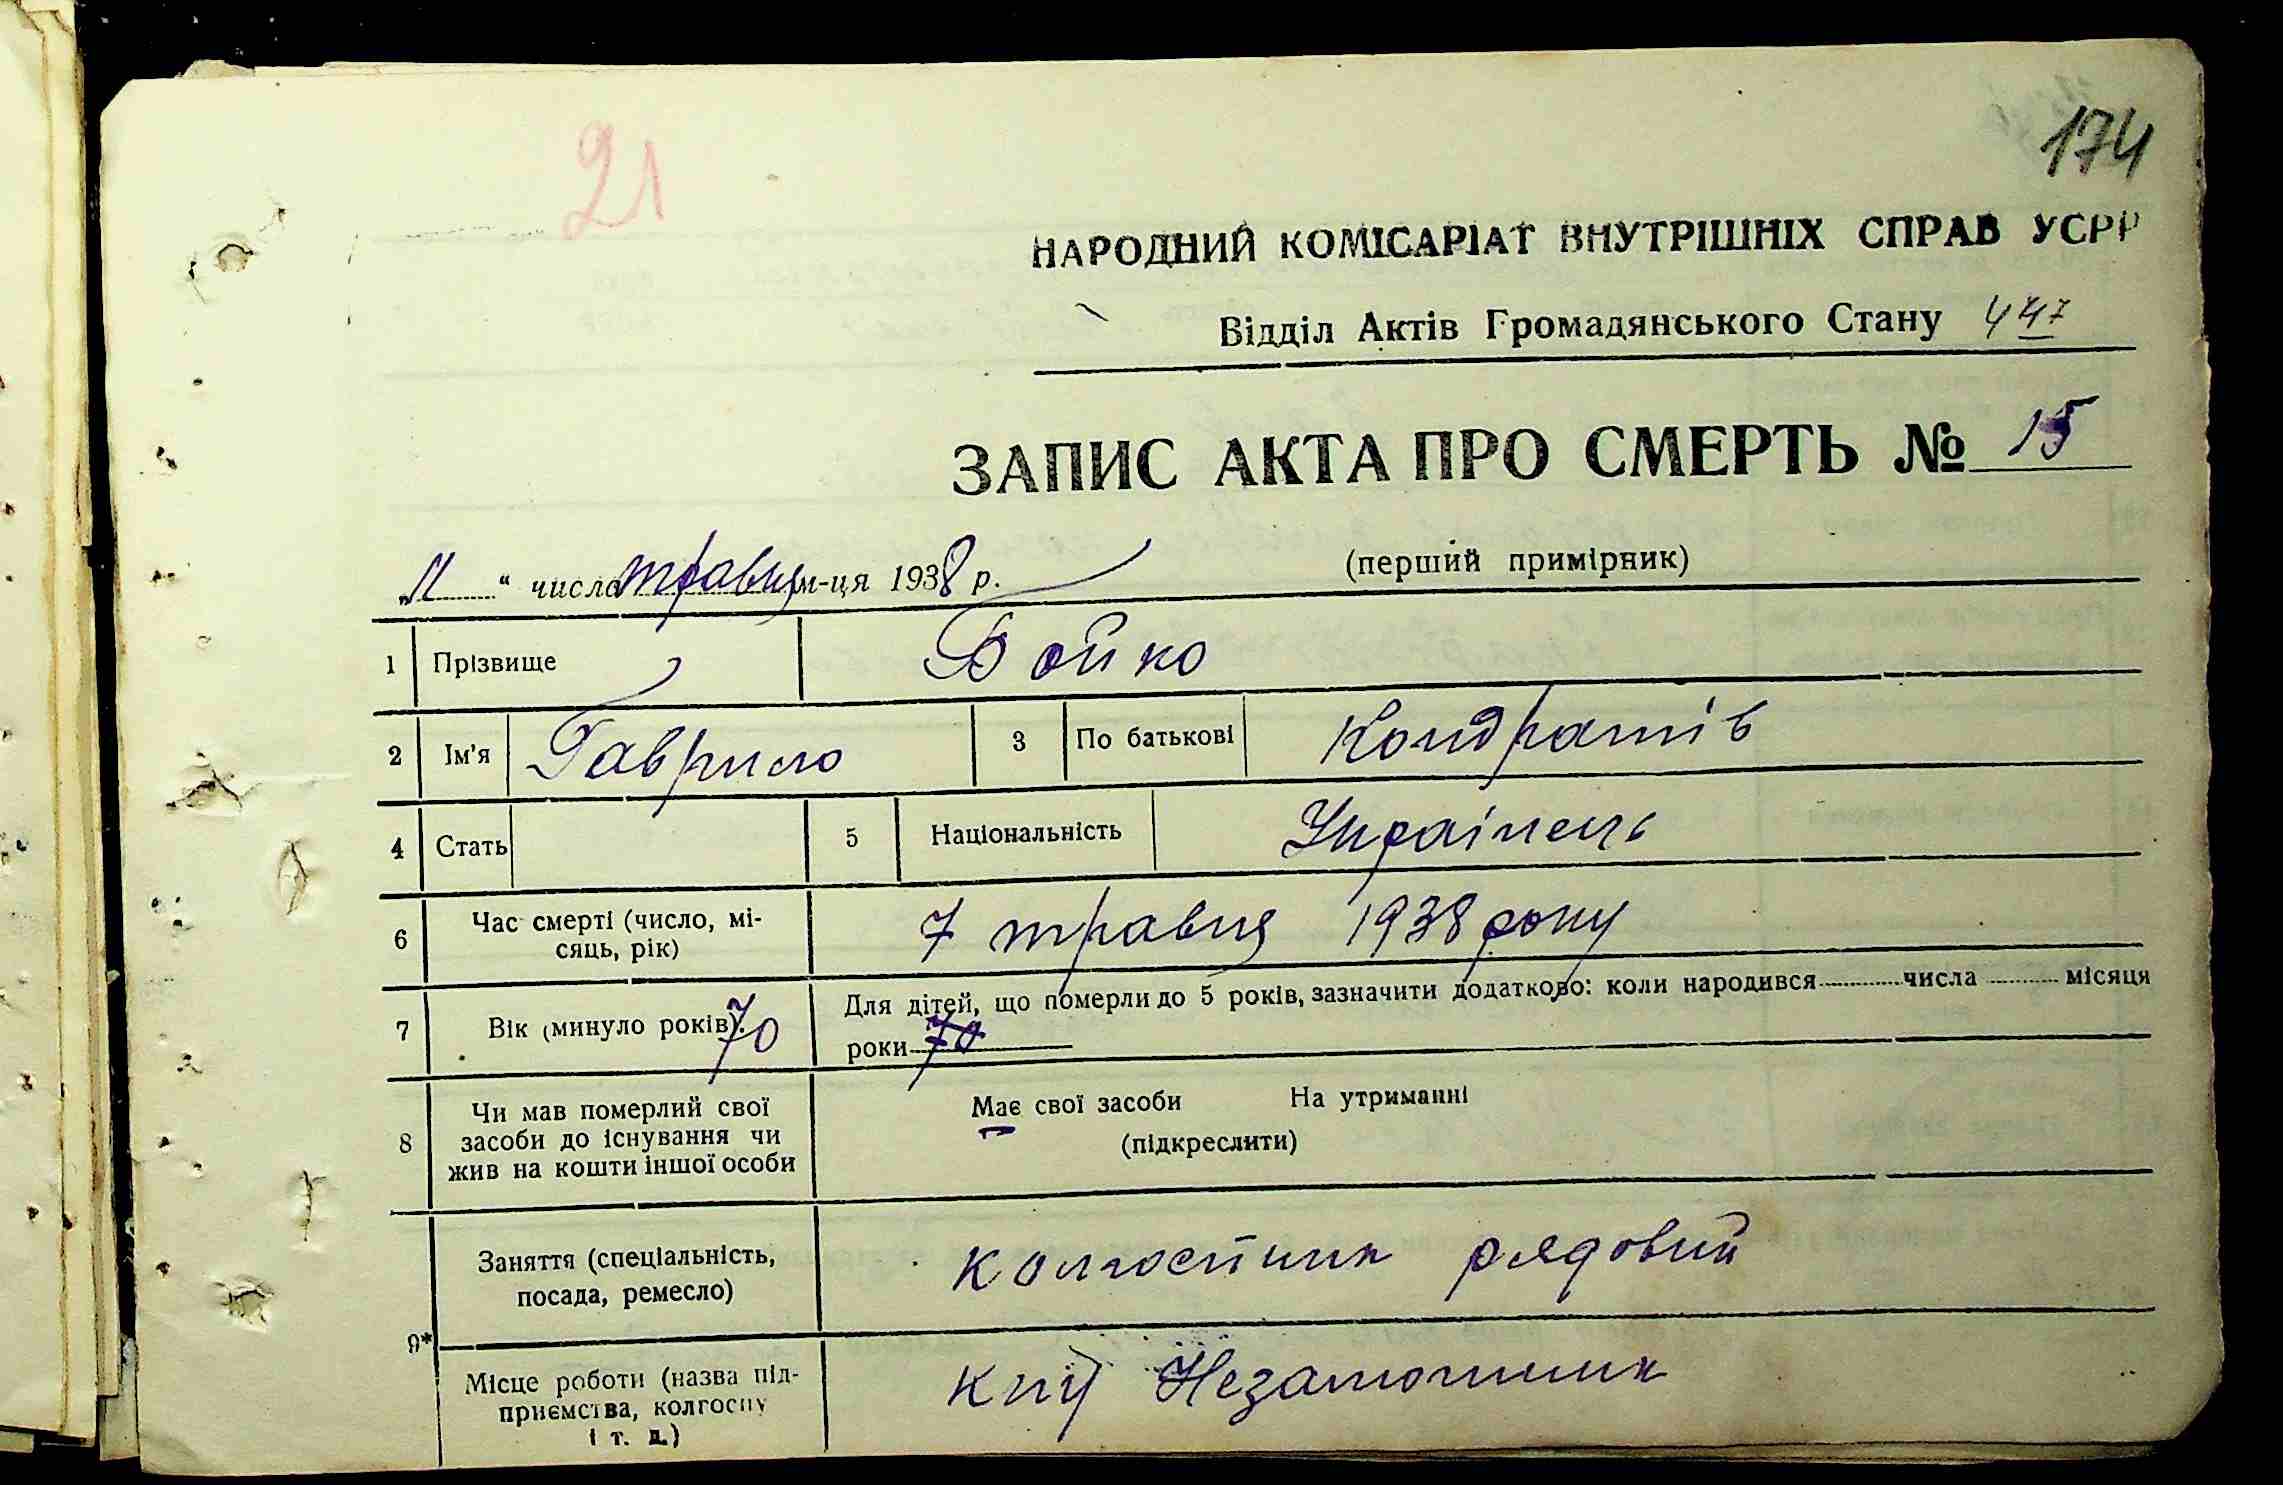 21
174
НАРОДНИЙ КОМІСАРІАТ ВНУТРІШНІХ СПРАВ УСРР
Відділ Актів Громадянського Стану 447
ЗАПИС АКТА ПРО СМЕРТЬ № 15
(перший примірник)
„11“ число травця м-ця 1938 р.
1 Прізвище Бойко
2 Ім'я Гаврило 3 По батькові Кондратів
4 Стать 5 Національність Українець
6 Час смерті (число, мі-
сяць, рік) 7 травця 1938 року
7 Вік (минуло років). 70 Для дітей, що померли до 5 років, зазначити додатково: коли народився числа місяця
роки 70
8 Чи мав померлий свої
засоби до існування чи
жив на кошти іншої особи
Має свої засоби На утриманні
(підкреслити)
9*
Заняття (спеціальність,
посада, ремесло) колгоспник рядовий
Місце роботи (назва під-
приємства, колгоспу
і т. д.)
Незаможник